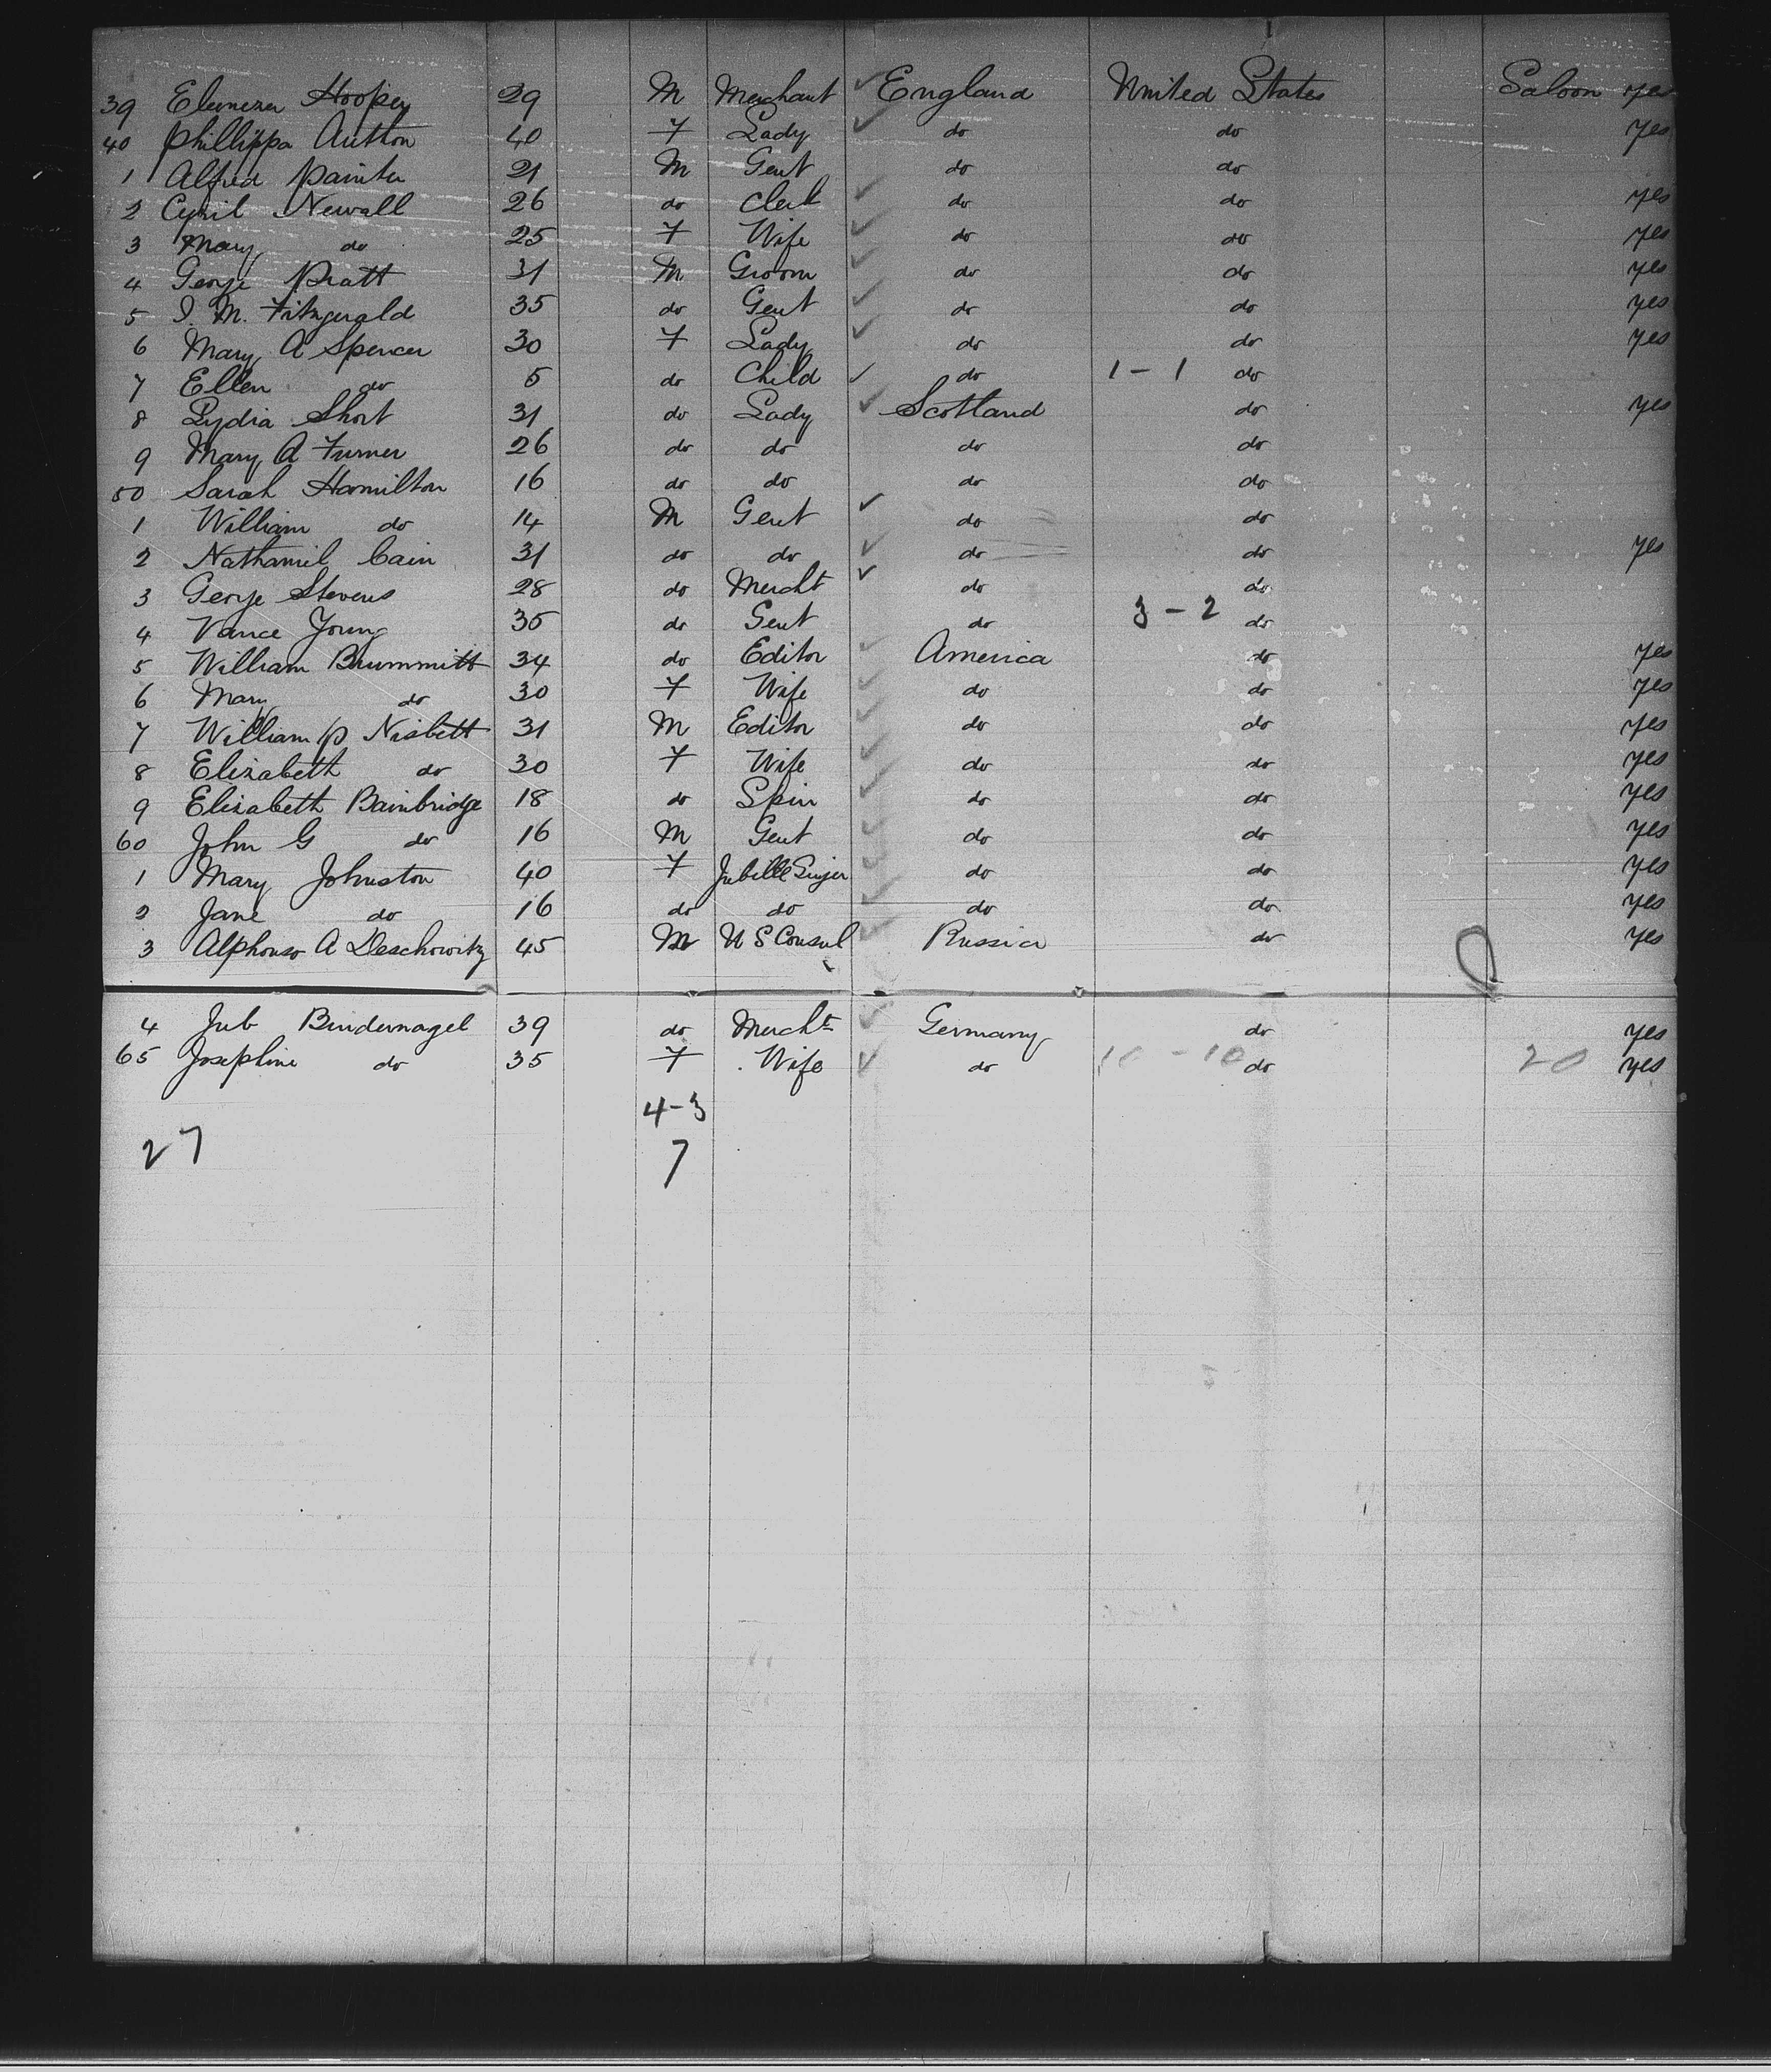 39 Ebenezer Hooper 29 M Merchant ✓ England United States Saloon yes
40 Phillippa Authon 40 F Lady ✓ do do yes
1 Alfred Painter 21 M Gent do do
2 Cyril Newall 26 do Clerk ✓ do do yes
3 Mary do 25 F Wife ✓ do do yes
4 George Pratt 31 M Groom ✓ do do yes
5 J. M. Fitzgerald 35 do Gent ✓ do do yes
6 Mary A Spencer 30 F Lady ✓ do do yes
7 Ellen do 5 do Child ✓ do 1 - 1 do
8 Lydia Short 31 do Lady ✓ Scotland do yes
9 Mary A Turner 26 do do do do
50 Sarah Hamilton 16 do do do do
1 William do 14 M Gent ✓ do do
2 Nathaniel Cain 31 do do ✓ do do yes
3 George Stevens 28 do Mercht ✓ do do
4 Vance Young 35 do Gent do 3 - 2 do
5 William Brummitt 34 do Editor ✓ America do yes
6 Mary do 30 F Wife ✓ do do yes
7 William P Nisbett 31 M Editor ✓ do do yes
8 Elizabeth do 30 F Wife ✓ do do yes
9 Elizabeth Bainbridge 18 do Spin ✓ do do yes
60 John G do 16 M Gent ✓ do do yes
1 Mary Johnston 40 F Jubille Singer ✓ do do yes
2 Jane do 16 do do ✓ do do yes
3 Alphonso A Deschowitz 45 M U S Consul ✓ Russia do yes
4 Jub Bindernagel 39 do Mercht ✓ Germany do yes
65 Josephine do 35 F Wife ✓ do 10 - 10 do 20 yes
4-3
27 7